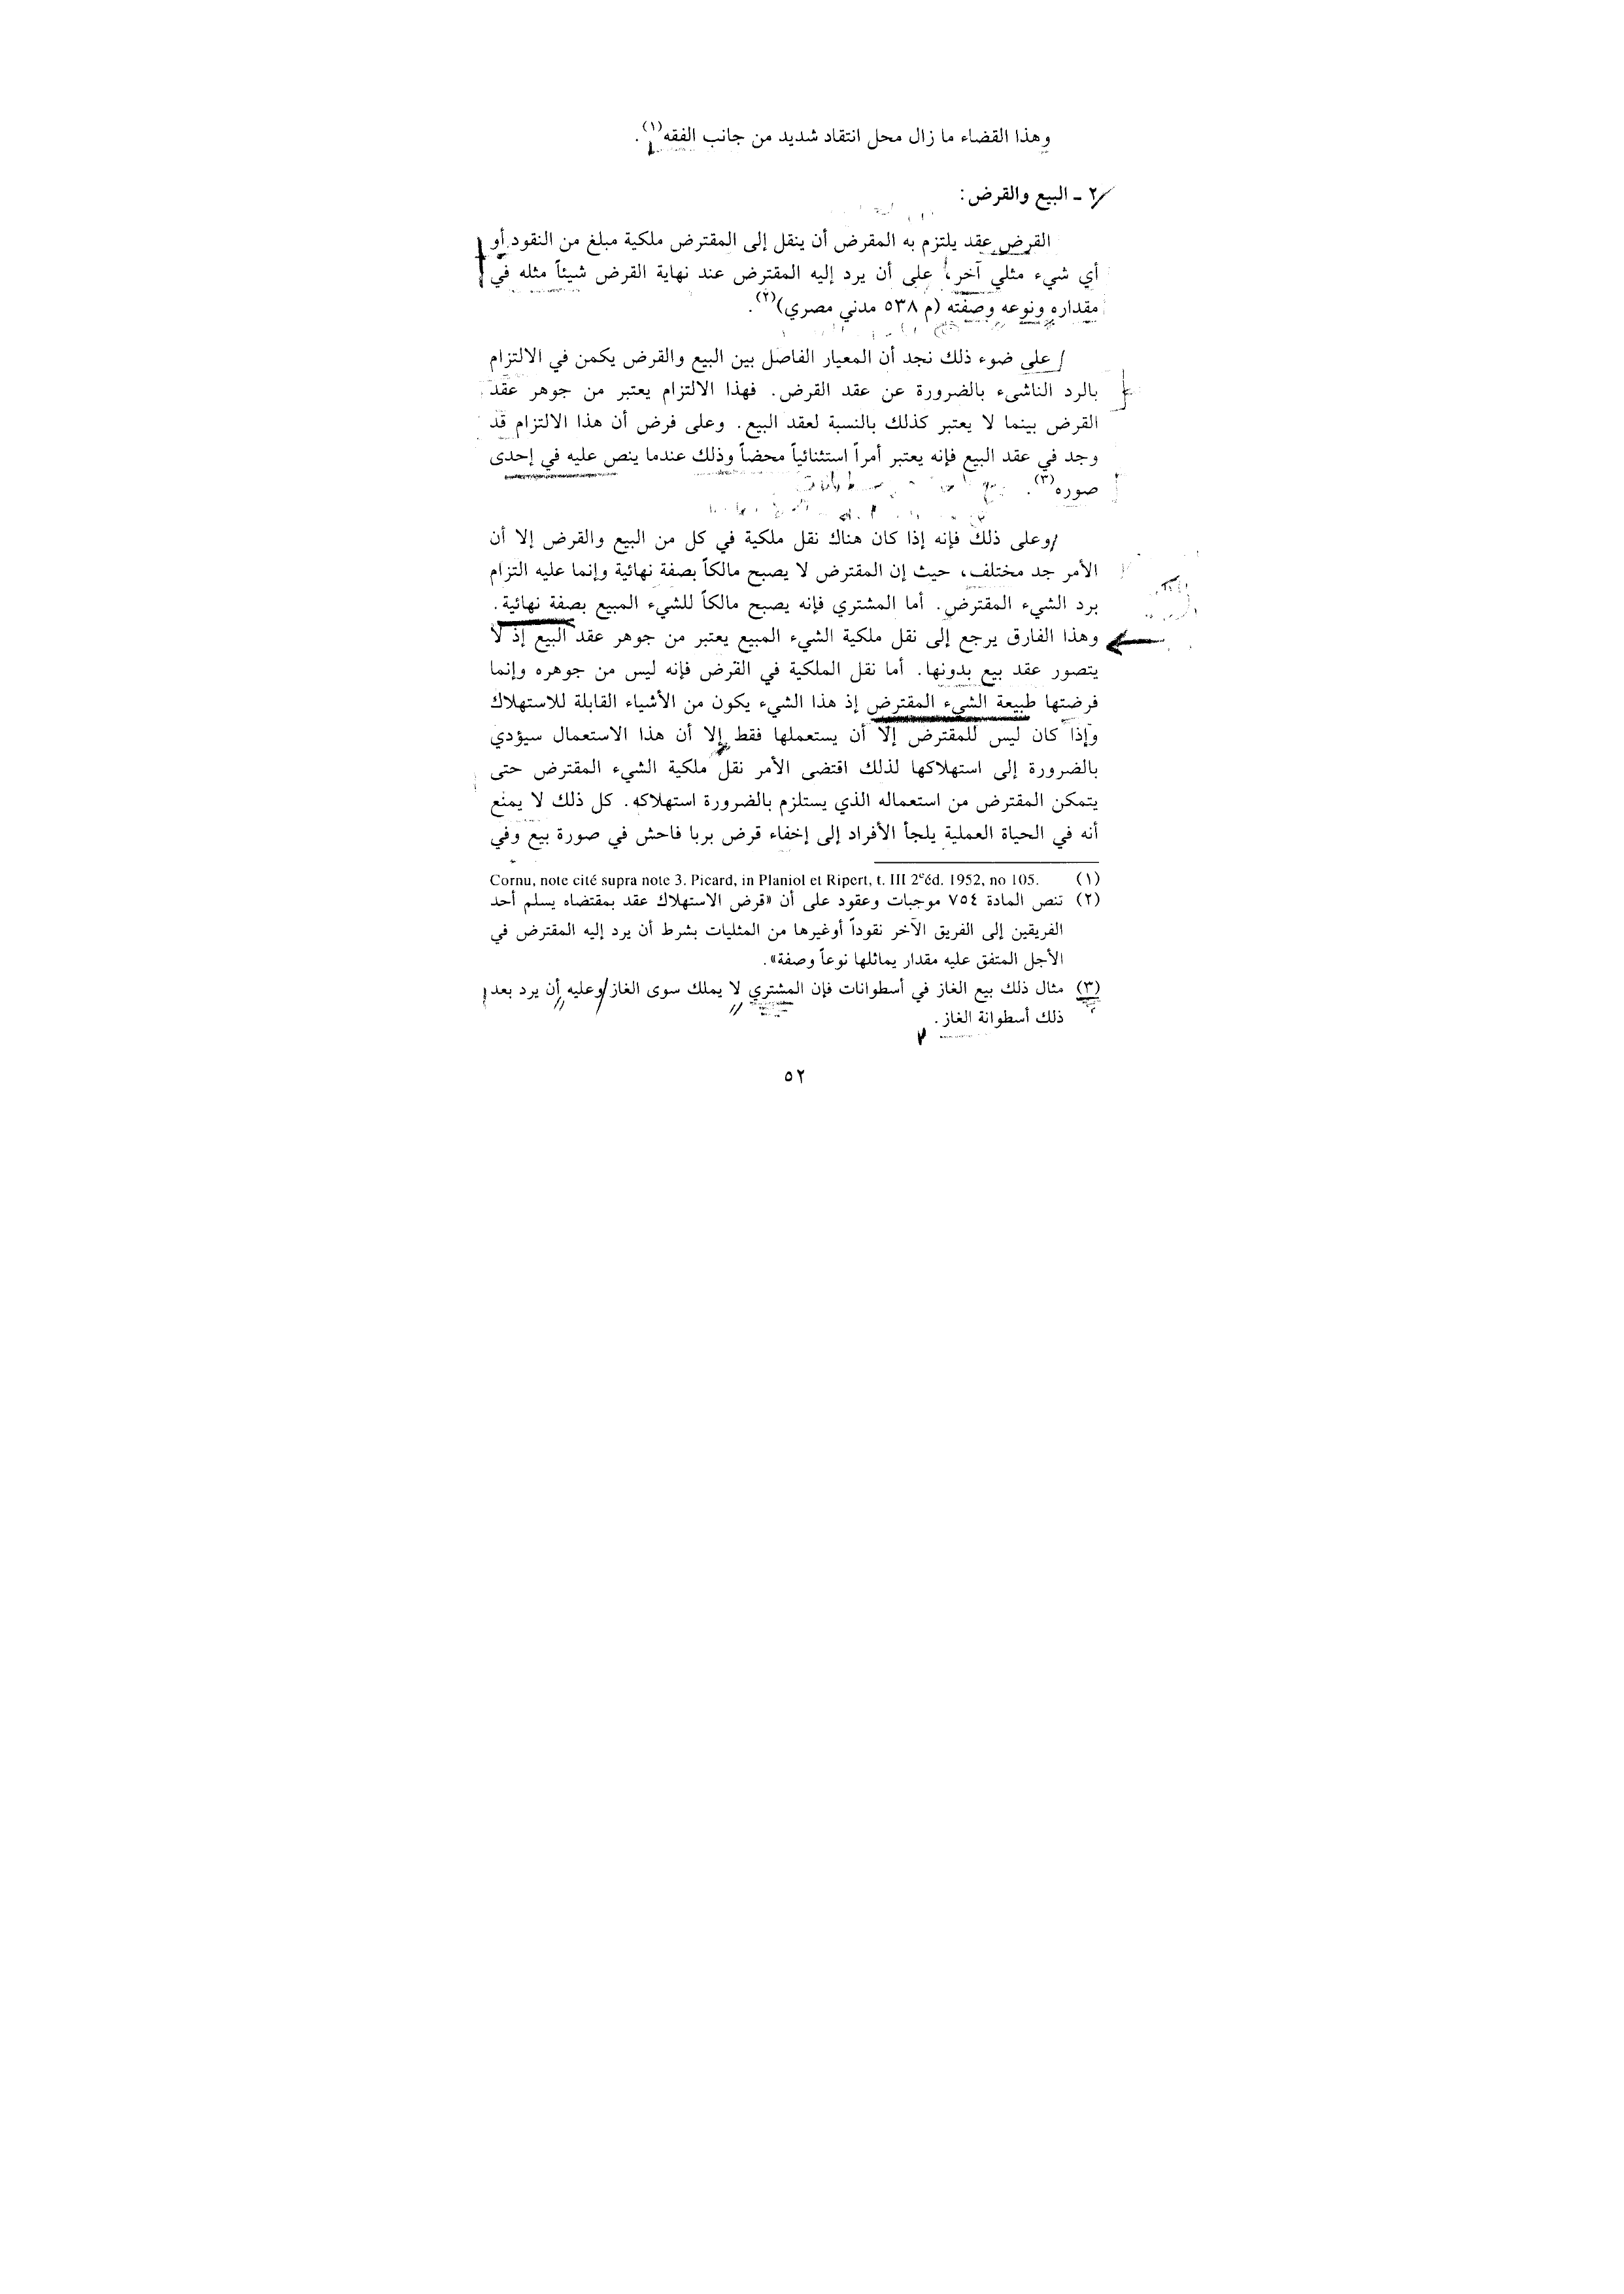 وهذا القضاء ما زال محل انتقاد شديد من جانب الفقه(١).
٢ ـ البيع والقرض:
القرض عقد يلتزم به المقرض أن ينقل إلى المقترض ملكية مبلغ من النقود أو
أي شيء مثلي آخر، على أن يرد إليه المقترض عند نهاية القرض شيئاً مثله في
مقداره ونوعه وصفته (م ٥٣٨ مدني مصري)(٢).
على ضوء ذلك نجد أن المعيار الفاصل بين البيع والقرض يكمن في الالتزام
بالرد الناشىء بالضرورة عن عقد القرض. فهذا الالتزام يعتبر من جوهر عقد
القرض بينما لا يعتبر كذلك بالنسبة لعقد البيع. وعلى فرض أن هذا الالتزام قد
وجد في عقد البيع فإنه يعتبر أمراً استثنائياً محضاً وذلك عندما ينص عليه في إحدى
صوره(٣).
وعلى ذلك فإنه إذا كان هناك نقل ملكية في كل من البيع والقرض إلا أن
الأمر جد مختلف، حيث إن المقترض لا يصبح مالكاً بصفة نهائية وإنما عليه التزام
برد الشيء المقترض. أما المشتري فإنه يصبح مالكاً للشيء المبيع بصفة نهائية.
وهذا الفارق يرجع إلى نقل ملكية الشيء المبيع يعتبر من جوهر عقد البيع إذ لا
يتصور عقد بيع بدونها. أما نقل الملكية في القرض فإنه ليس من جوهره وإنما
فرضتها طبيعة الشيء المقترض إذ هذا الشيء يكون من الأشياء القابلة للاستهلاك
وإذا كان ليس للمقترض إلا أن يستعملها فقط إلا أن هذا الاستعمال سيؤدي
بالضرورة إلى استهلاكها لذلك اقتضى الأمر نقل ملكية الشيء المقترض حتى
يتمكن المقترض من استعماله الذي يستلزم بالضرورة استهلاكه. كل ذلك لا يمنع
أنه في الحياة العملية يلجأ الأفراد إلى إخفاء قرض بربا فاحش في صورة بيع وفي
(١) Cornu, note cité supra note 3. Picard, in Planiol et Ripert, t. III 2ᵉéd. 1952, no 105.
(٢) تنص المادة ٧٥٤ موجبات وعقود على أن «قرض الاستهلاك عقد بمقتضاه يسلم أحد
الفريقين إلى الفريق الآخر نقوداً أوغيرها من المثليات بشرط أن يرد إليه المقترض في
الأجل المتفق عليه مقدار يماثلها نوعاً وصفة».
(٣) مثال ذلك بيع الغاز في أسطوانات فإن المشتري لا يملك سوى الغاز وعليه أن يرد بعد
ذلك أسطوانة الغاز.
٥٢